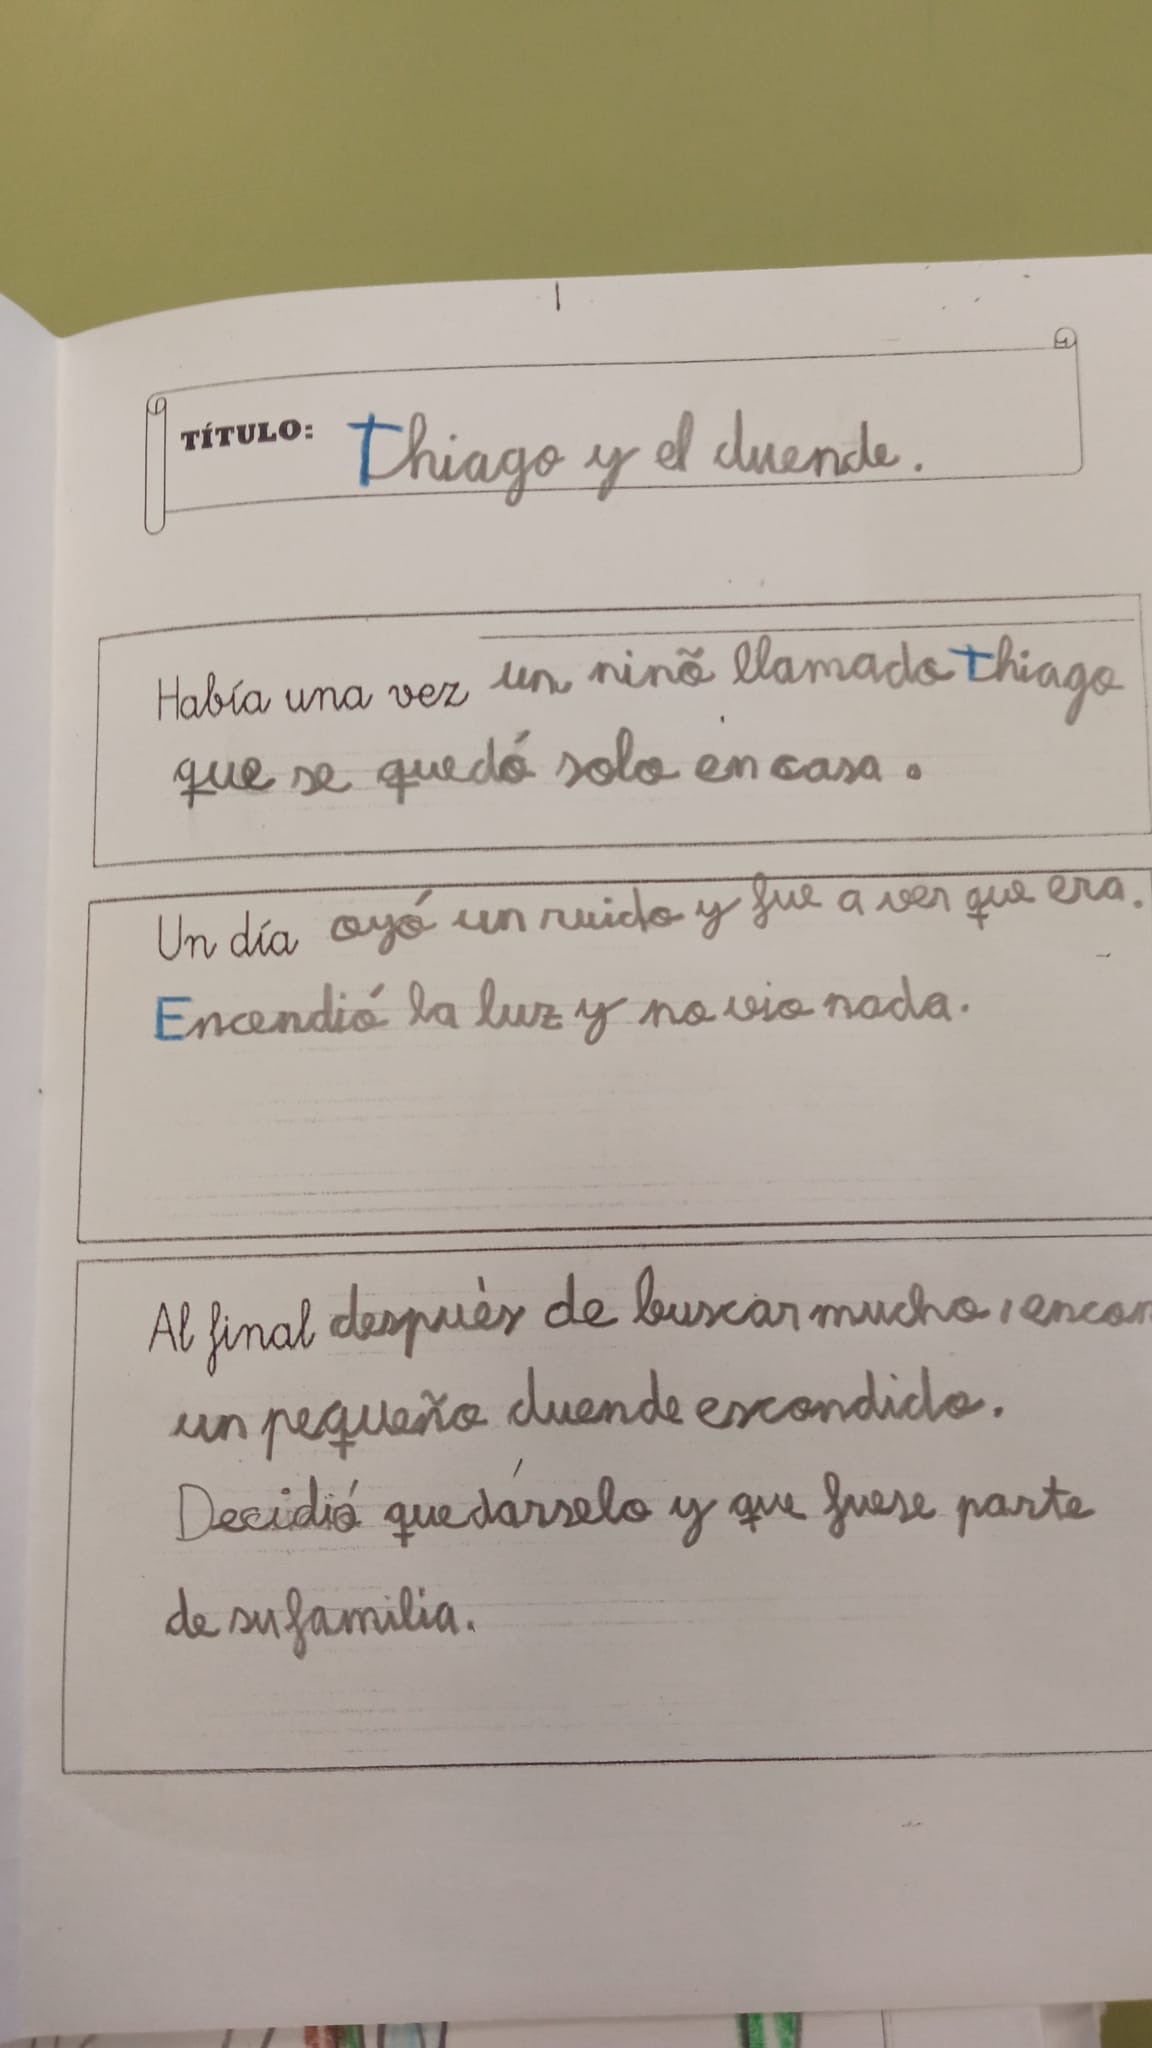 TÍTULO: Thiago y el duende.
Había una vez un niño llamado Thiago
que se quedó solo en casa.
Un día oyó un ruido y fue a ver que era.
Encendió la luz y no vio nada.
Al final después de buscar mucho, encon
un pequeño duende escondido.
Decidió quedárselo y que fuese parte
de su familia.